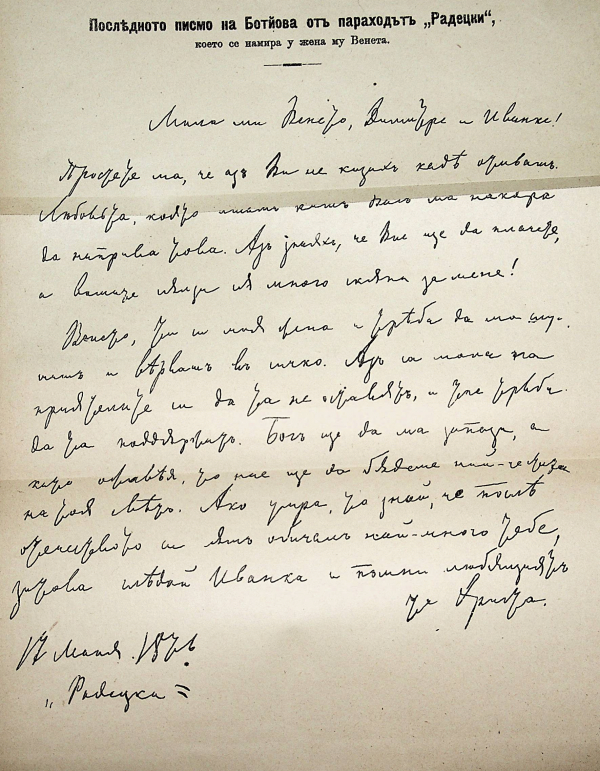 Послѣдното писмо на Ботйова отъ параходътъ „Радецки“,
което се намира у жена му Венета.
Мила ми Венето, Димитре и Иванке!
Простете ма, че азъ Ви не казахъ кадѣ отивамъ.
Любовьта, която имамъ къмъ Васъ ма накара
да направа това. Азъ знаяхъ, че Вие ще да плачете,
а вашите сълзи са много скъпи за мене!
Венето, ти си моя жена и трѣба да ма слу-
шашъ и вѣрвашъ въ сичко. Азъ са мола на
приятелите си да та не оставятъ, и тие трѣба
да та поддържатъ. Богъ ще да ма запази, а
като оживѣя, то ние ще да бъдеме най-честити
на тоя свѣтъ. Ако умра, то знай, че послѣ
отечеството си съмъ обичалъ най-много тебе,
затова гледай Иванка и помни любящиятъ
те Христа.
17 Маия 1876
„Радецки“